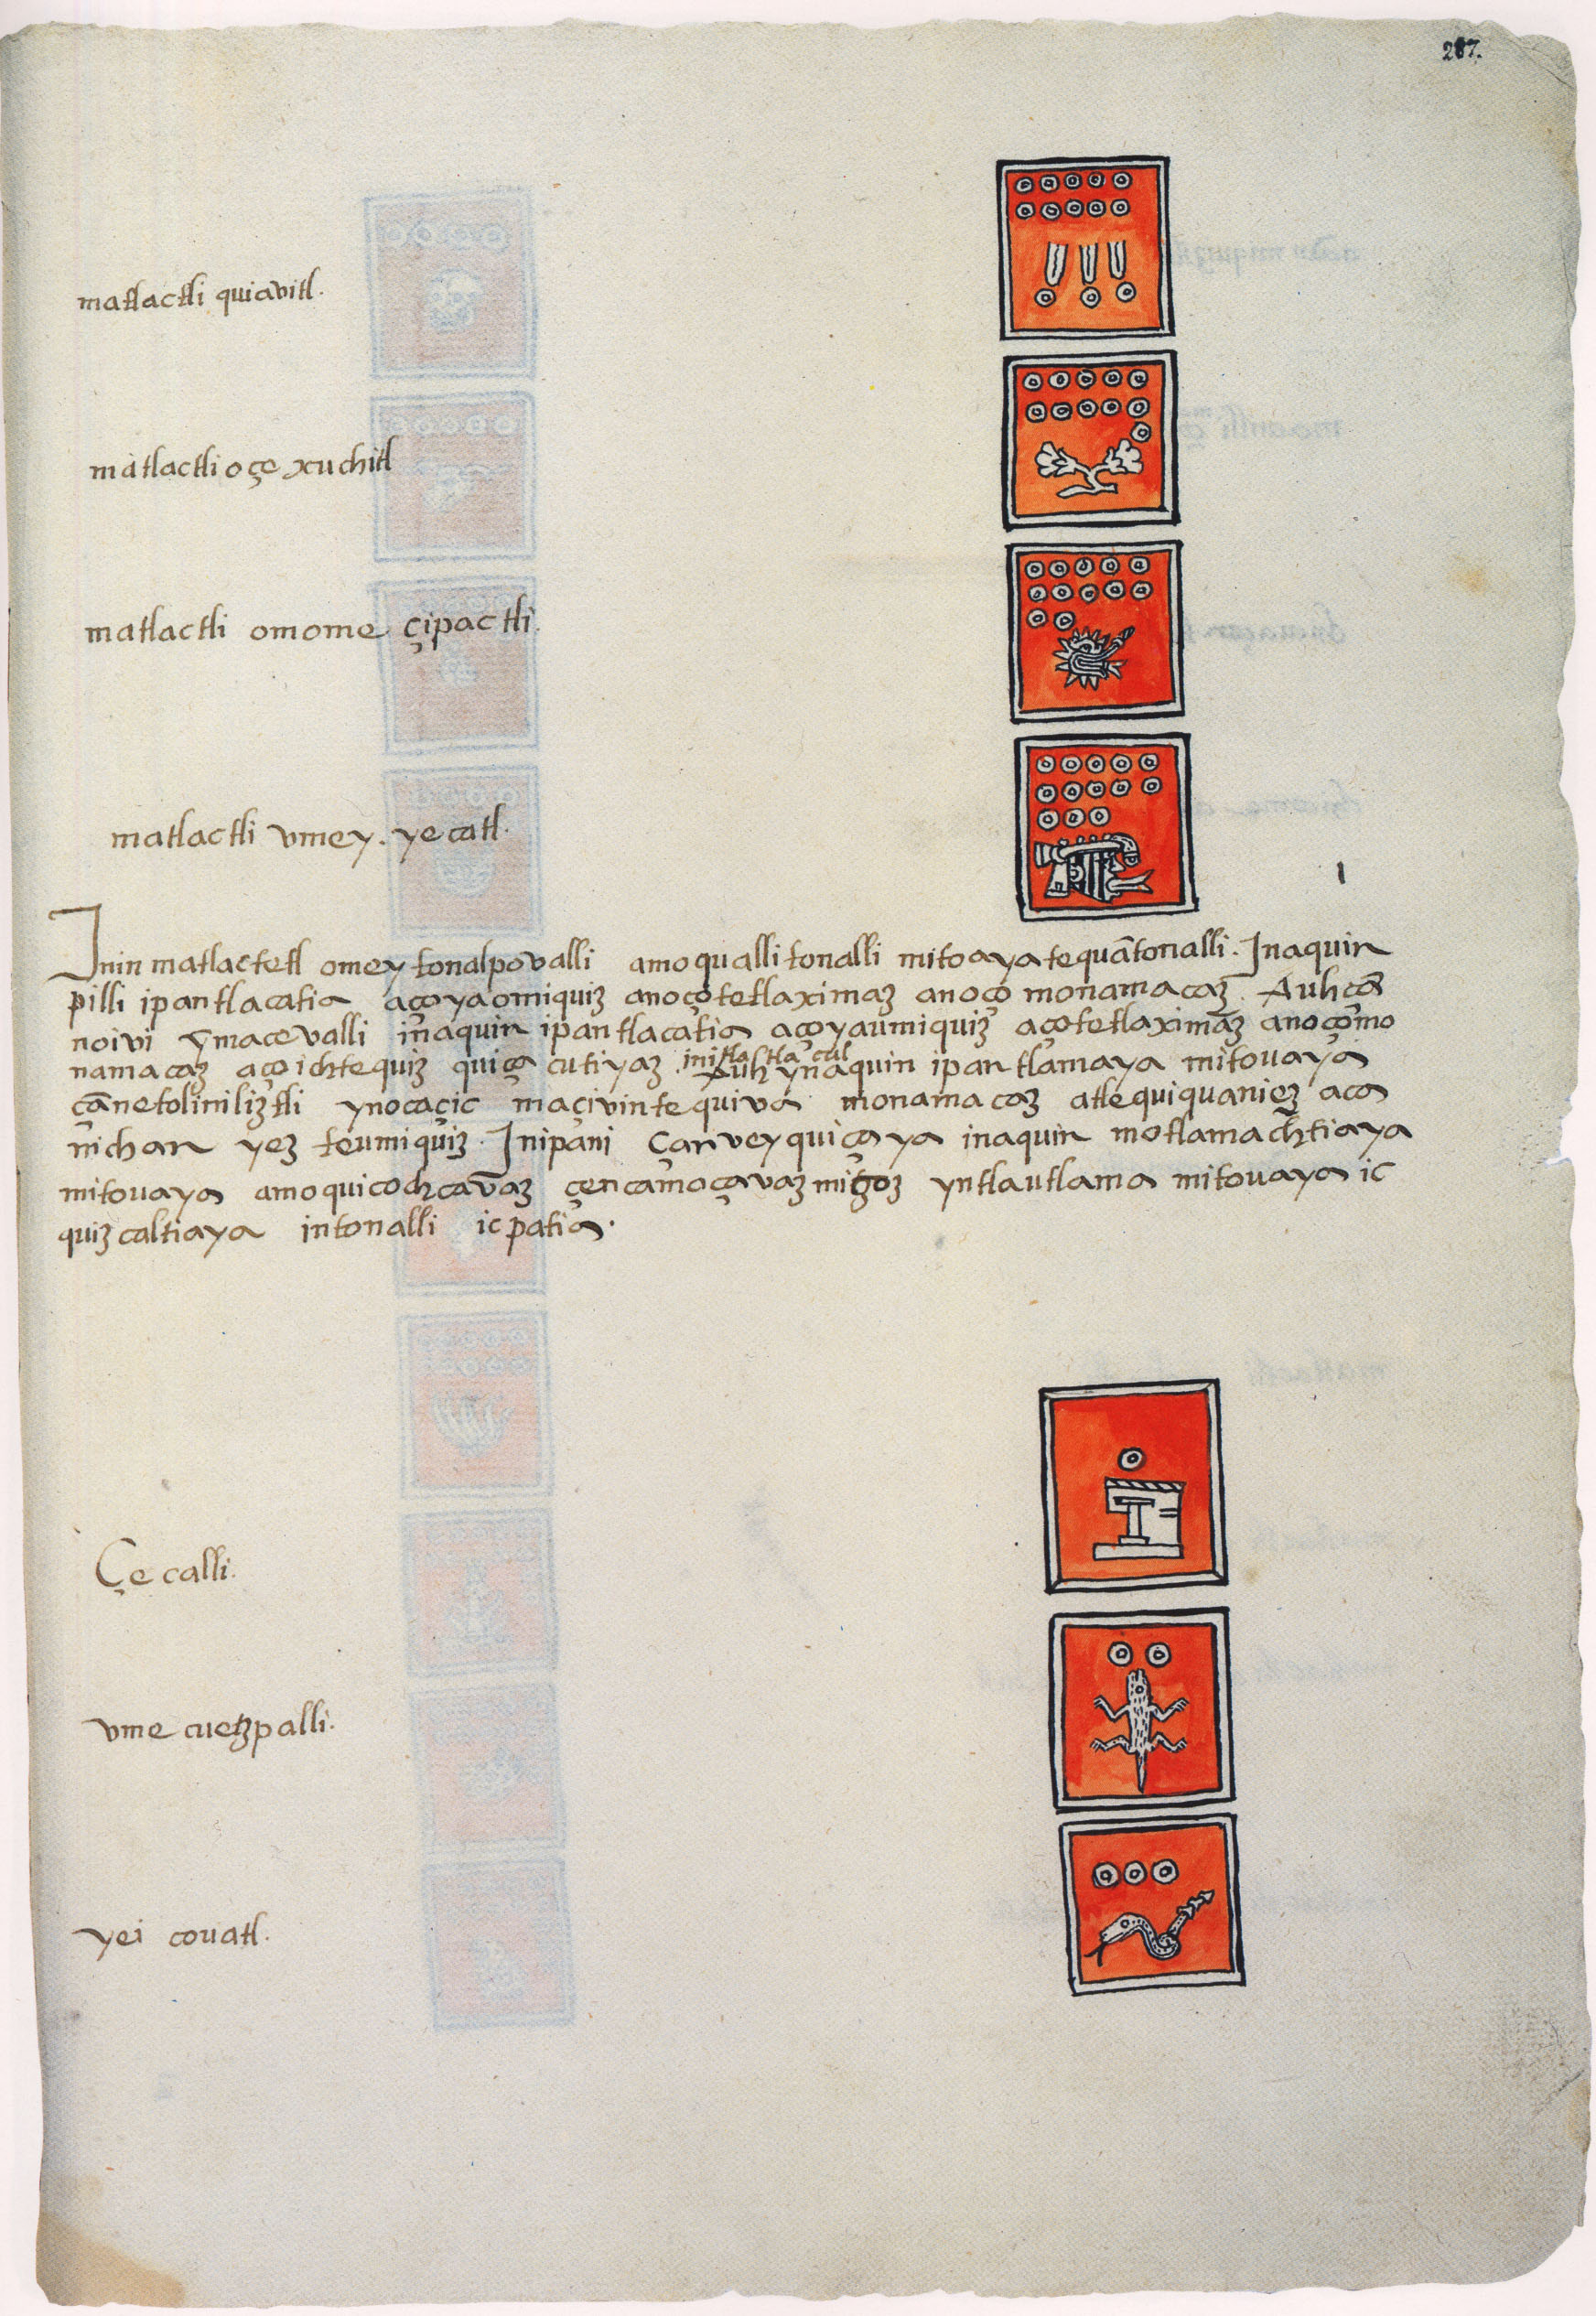 287.
matlactli quiavitl.
matlactli oçe xuchitl
matlactli omome çipactli.
matlactli vmey. yecatl.
Jnin matlactetl omey tonalpovalli amo qualli tonalli mitoaya tequãtonalli. Jnaquin
pilli ipan tlacatia aço yaomiquiz anoço tetlaximaz anoço monamacaz. Auh çã
noivi ymacevalli inaquin ipan tlacatia aço yaumiquiz aço tetlaximaz anoço mo
namacaz aço ichtequiz quiça cutiyaz. initlatlacul Auh ynaquin ipan tlamaya mitovaya
çã netoliniliztli ynocaçic maçivin tequiva monamacaz atle quiquaniez aca
nichan yez teumiquiz. Jnipani çan vey quiçaya inaquin motlamachtiaya
mitovaya amo quicochcavaz çencamoçavaz miçoz yntlautlama mitovaya ic
quizcaltiaya intonalli ic patia.
Çe calli.
vme cuetzpalli.
yei covatl.